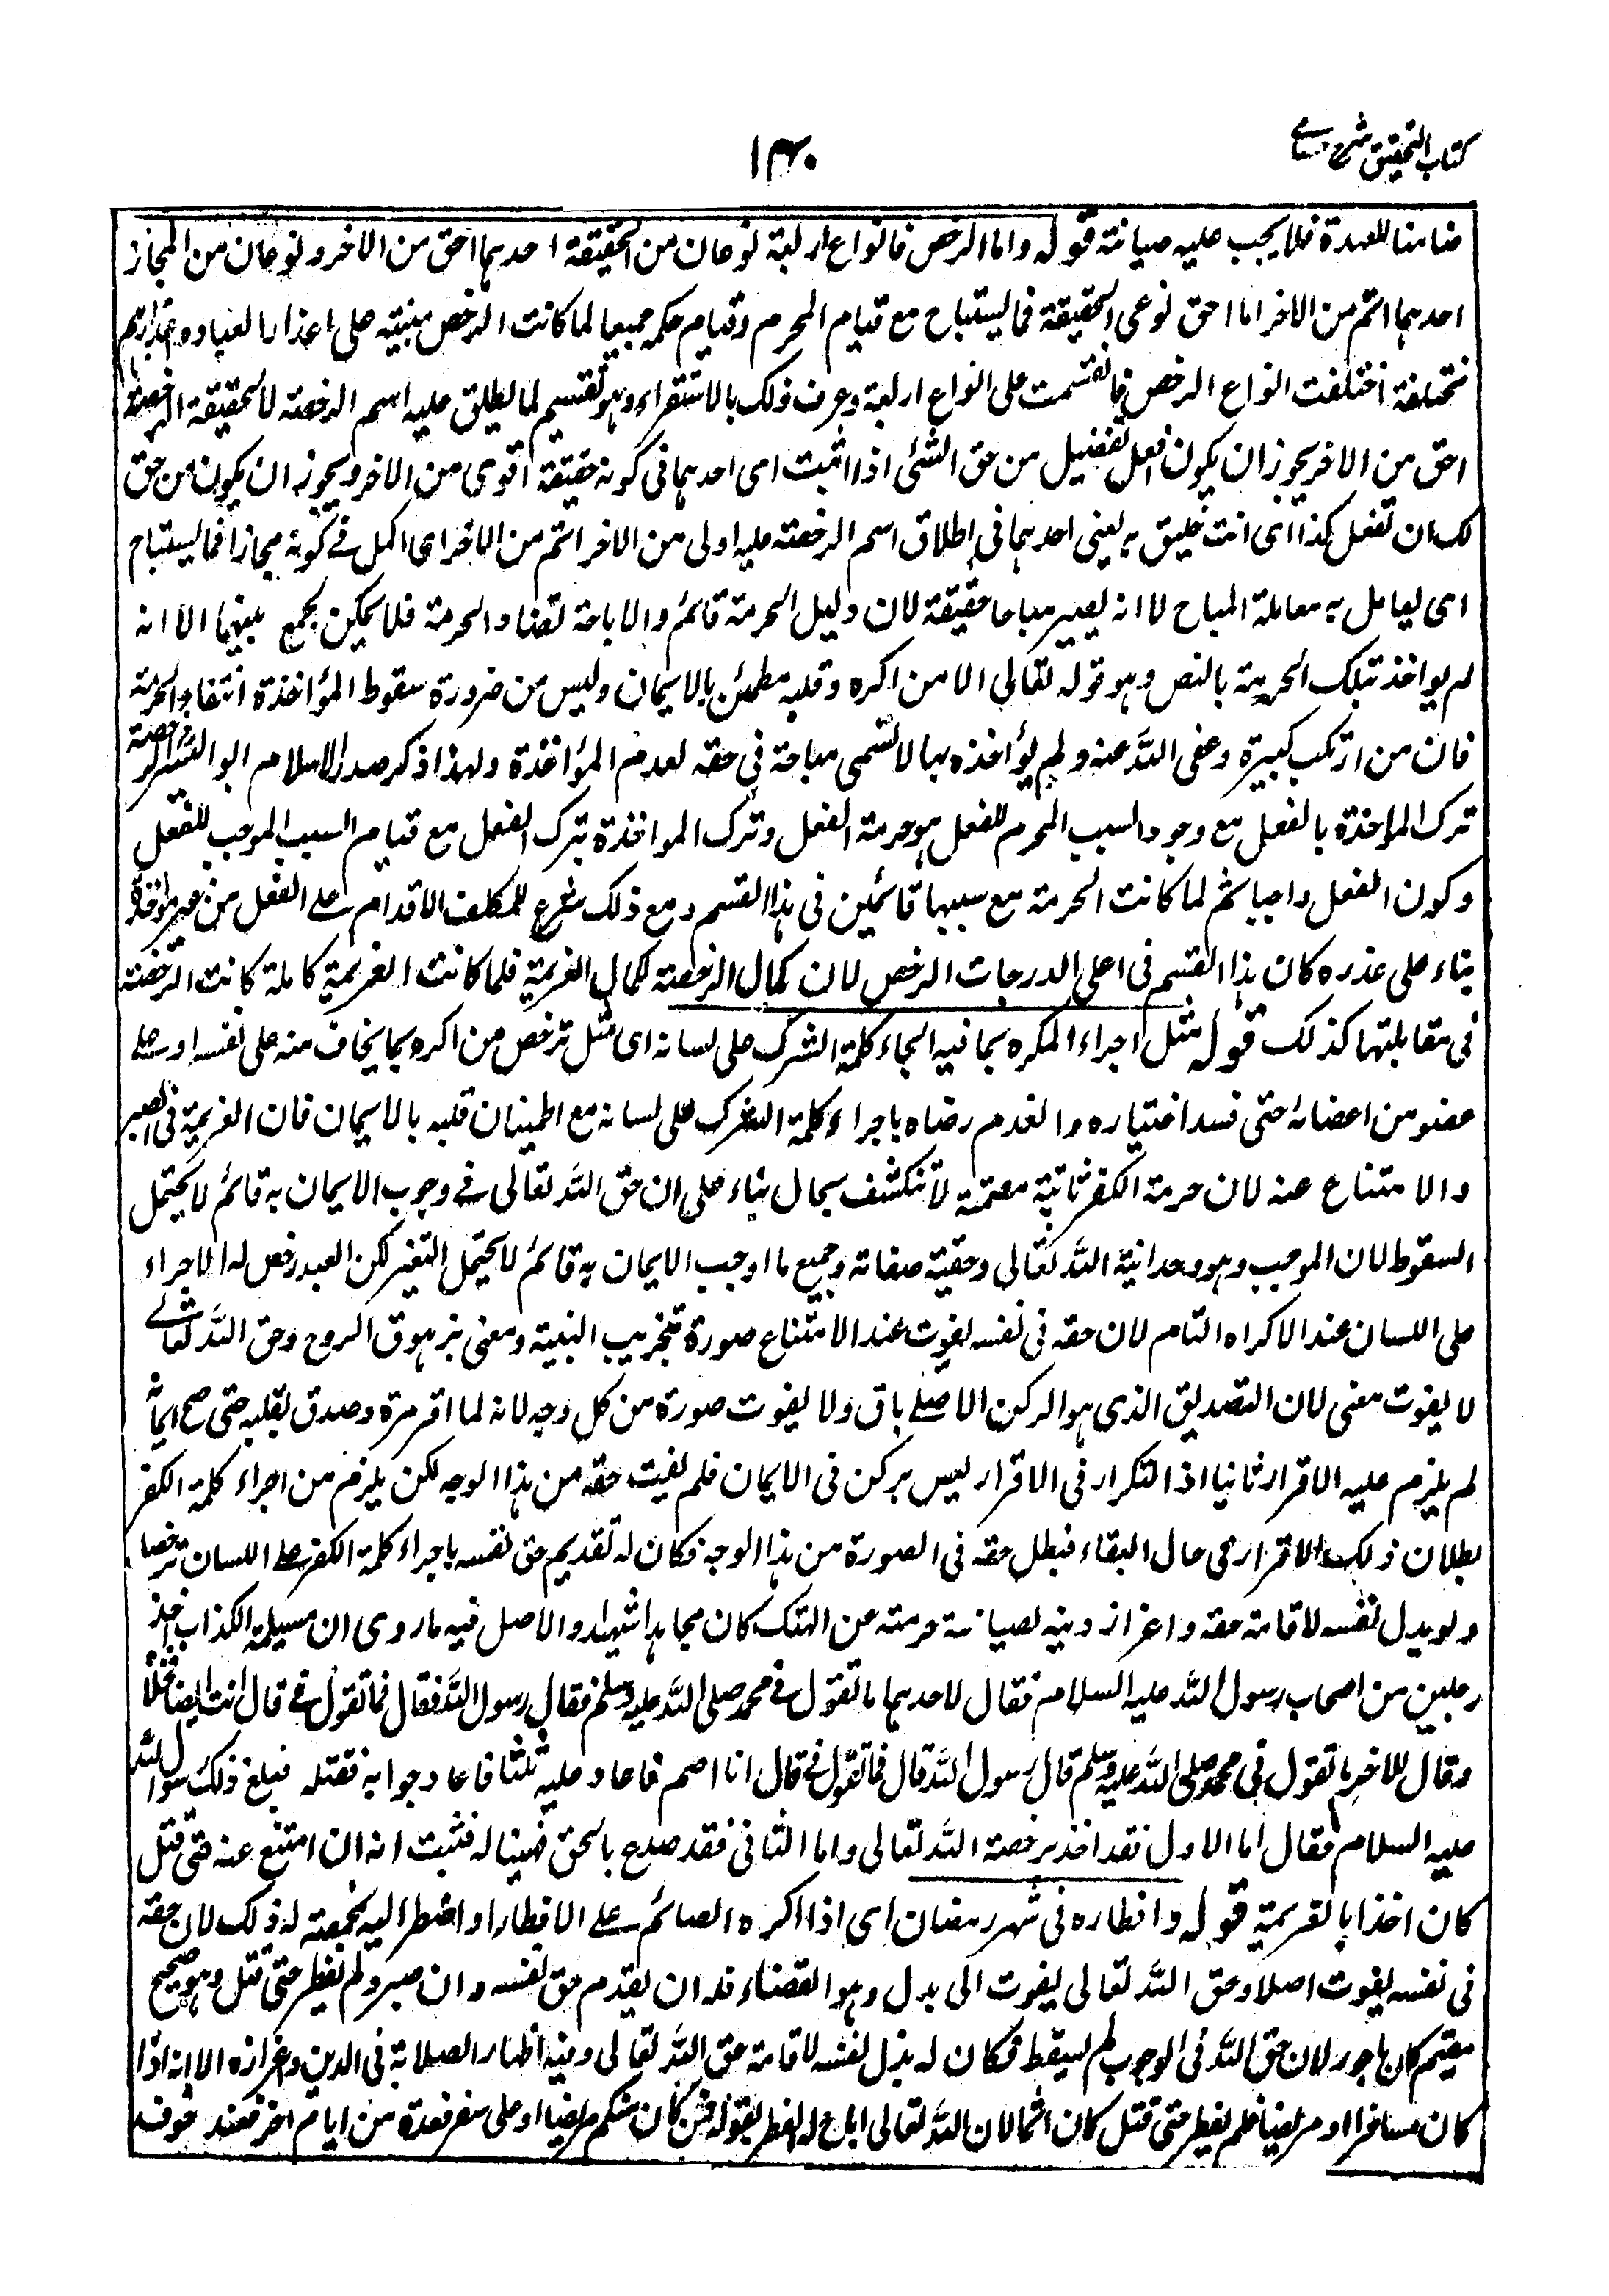 كتاب التحقيق شرح حسامي
١٤٠
ضامنا للعهدة فلا يجب عليه صيانته قوله واما الرخص فانواع اربعة نوعان من الحقيقة احدهما احق من الاخر ونوعان من المجاز
احدهما اتم من الاخر اما احق نوعى الحقيقة فما يستباح مع قيام المحرم وقيام حكمه جميعا لما كانت الرخص مبنية على اعذار العباد واعذارهم
مختلفة اختلفت انواع الرخص فانقسمت على انواع اربعة وعرف ذلك بالاستقراء وهو تقسيم لما يطلق عليه اسم الرخصة لا لحقيقة الرخصة
احق من الاخر يجوز ان يكون افعل تفضيل من حق الشئ اذا اثبت اى احدهما فى كونه حقيقة اقوى من الاخر ويجوز ان يكون من حق
لك ان تفعل كذا اى انت خليق به يعنى احدهما فى اطلاق اسم الرخصة عليه اولى من الاخر اتم من الاخر اى اكمل فى كونه مجازا فما يستباح
اى يعامل به معاملة المباح لا انه يصير مباحا حقيقة لان دليل الحرمة قائم والاباحة تضاد الحرمة فلا يمكن الجمع بينهما الا انه
لم يواخذ بتلك الحرمة بالنص وهو قوله تعالى الا من اكره وقلبه مطمئن بالايمان وليس من ضرورة سقوط المؤاخذة انتفاء الحرمة
فان من ارتكب كبيرة وعفى الله عنه ولم يؤاخذه بها لا تسمى مباحة فى حقه لعدم المؤاخذة ولهذا ذكر صدر الاسلام ابو اليسر الرخصة
ترك المواخذة بالفعل مع وجود السبب المحرم للفعل هو حرمة الفعل وترك المواخذة بترك الفعل مع قيام السبب الموجب للفعل
وكون الفعل واجبا ثم لما كانت الحرمة مع سببها قائمين فى هذا القسم ومع ذلك شرع للمكلف الاقدام على الفعل من غير مواخذة
بناء على عذره كان هذا القسم فى اعلى الدرجات الرخص لان كمال الرخصة لكمال العزيمة فلما كانت العزيمة كاملة كانت الرخصة
فى مقابلتها كذلك قوله مثل اجراء المكره بما فيه الجاء كلمة الشرك على لسانه اى مثل ترخص من اكره بما يخاف منه على نفسه او على
عضو من اعضائه حتى فسد اختياره وانعدم رضاه باجراء كلمة الشرك على لسانه مع اطمينان قلبه بالايمان فان العزيمة فى الصبر
والامتناع عنه لان حرمة الكفر ثابتة مصمتة لا تنكشف بحال بناء على ان حق الله تعالى فى وجوب الايمان به قائم لا يحتمل
السقوط لان الموجب وهو وحدانية الله تعالى وحقية صفاته وجميع ما اوجب الايمان به قائم لا يحتمل التغير لكن العبد رخص له الاجراء
على اللسان عند الاكراه التام لان حقه فى نفسه يفوت عند الامتناع صورة بتخريب البنية ومعنى بزهوق الروح وحق الله تعالى
لا يفوت معنى لان التصديق الذى هو الركن الاصلى باق ولا يفوت صورة من كل وجه لانه لما اقر مرة وصدق بقلبه حتى صح ايمانه
لم يلزم عليه الاقرار ثانيا اذ التكرار فى الاقرار ليس بركن فى الايمان فلم يفت حقه من هذا الوجه لكن يلزم من اجراء كلمة الكفر
بطلان ذلك الاقرار فى حال البقاء فبطل حقه فى الصورة من هذا الوجه فكان له تقديم حق نفسه باجراء كلمة الكفر على اللسان ترخصا
ولو بذل نفسه لاقامة حقه واعزاز دينه لصيانة حرمته من الهتك كان مجاهدا شهيدا والاصل فيه ما روى ان مسيلمة الكذاب اخذ
رجلين من اصحاب رسول الله عليه السلام فقال لاحدهما ما تقول فى محمد صلى الله عليه وسلم فقال رسول الله فقال فما تقول فى قال انت ايضا فخلاه
وقال للاخر ما تقول فى محمد صلى الله عليه وسلم قال رسول الله قال فما تقول فى قال انا اصم فاعاد عليه ثلثا فاعاد جوابه فقتله فبلغ ذلك رسول الله
عليه السلام فقال اما الاول فقد اخذ برخصة الله تعالى واما الثانى فقد صدع بالحق فهنيئا له فثبت انه ان امتنع عنه حتى قتل
كان اخذا بالعزيمة قوله وافطاره فى شهر رمضان اى اذا اكره الصائم على الافطار او اضطر اليه بمخمصة له ذلك لان حقه
فى نفسه يفوت اصلا وحق الله تعالى يفوت الى بدل وهو القضاء فله ان يقدم حق نفسه وان صبر ولم يفطر حتى قتل وهو صحيح
مقيم كان ماجورا لان حق الله فى الوجوب لم يسقط فكان له بذل نفسه لاقامة حق الله تعالى وفيه اظهار الصلابة فى الدين واعزازه الا انه اذا
كان مسافرا او مريضا فلم يفطر حتى قتل كان اثما لان الله تعالى اباح له الفطر بقوله فمن كان منكم مريضا او على سفر فعدة من ايام اخر فعند خوف